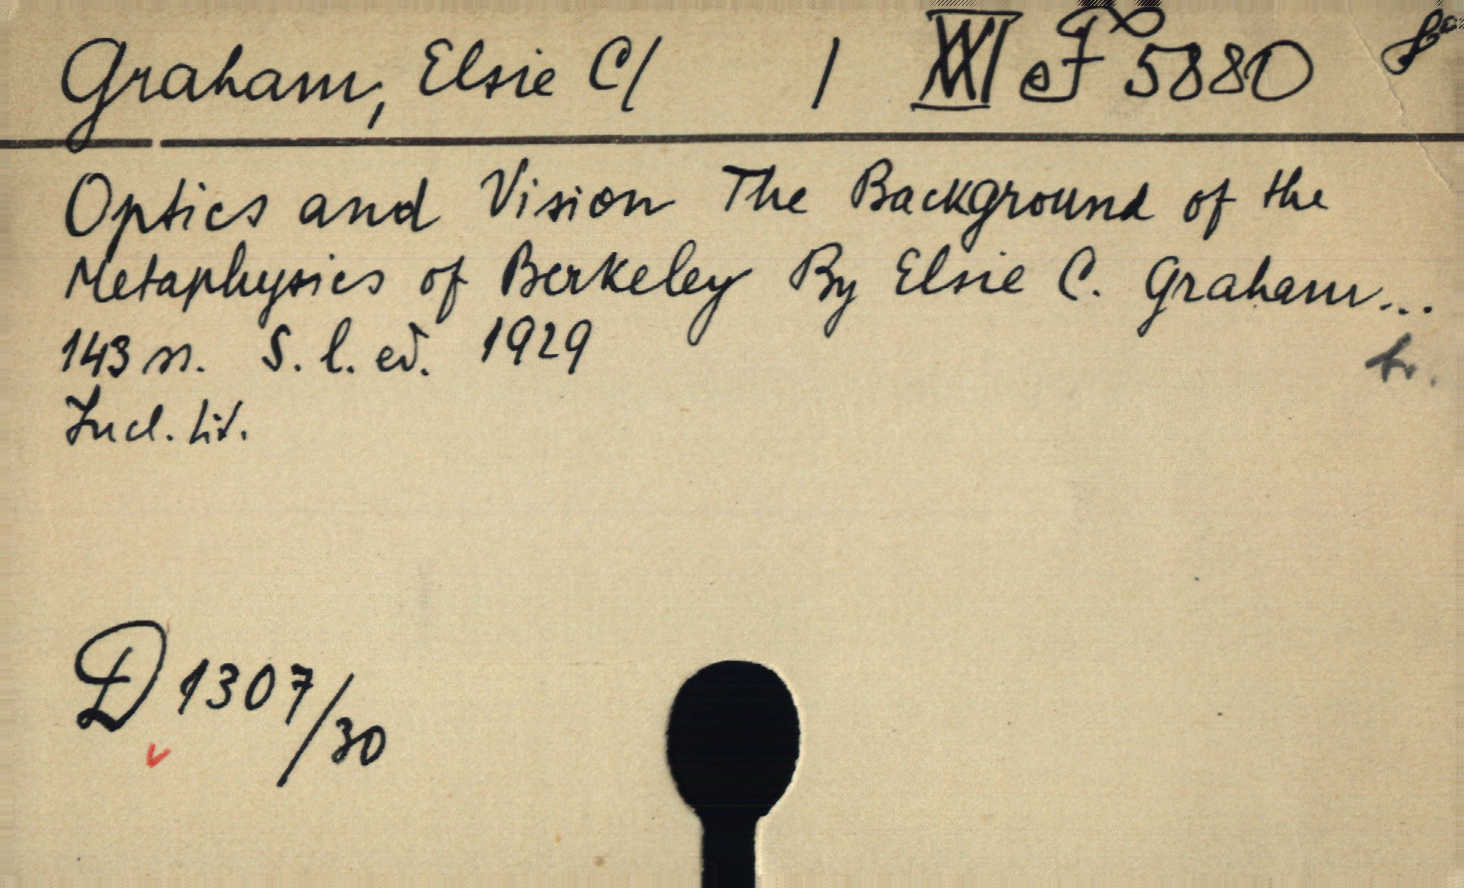 Graham, Elsie C/ / XXI eF 5880 8°
Optics and Vision The Background of the
Metaphysics of Berkeley By Elsie C. Graham...
143 ss. S. l. ed. 1929
Incl. lit.
D 1307/30